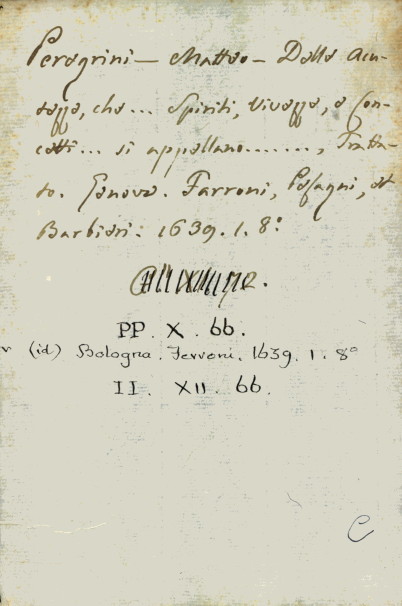 Peregrini — Matteo — Delle Acu-
tezze, che... Spiriti, Vivezze, e Con-
cetti... si appellano........, Tratta-
to. Genova. Farroni, Pesagni, et
Barbieri: 1639. 1. 8°
PP. X. 66.
(id) Bologna. Ferroni. 1639. 1. 8°
II. XII. 66.
C